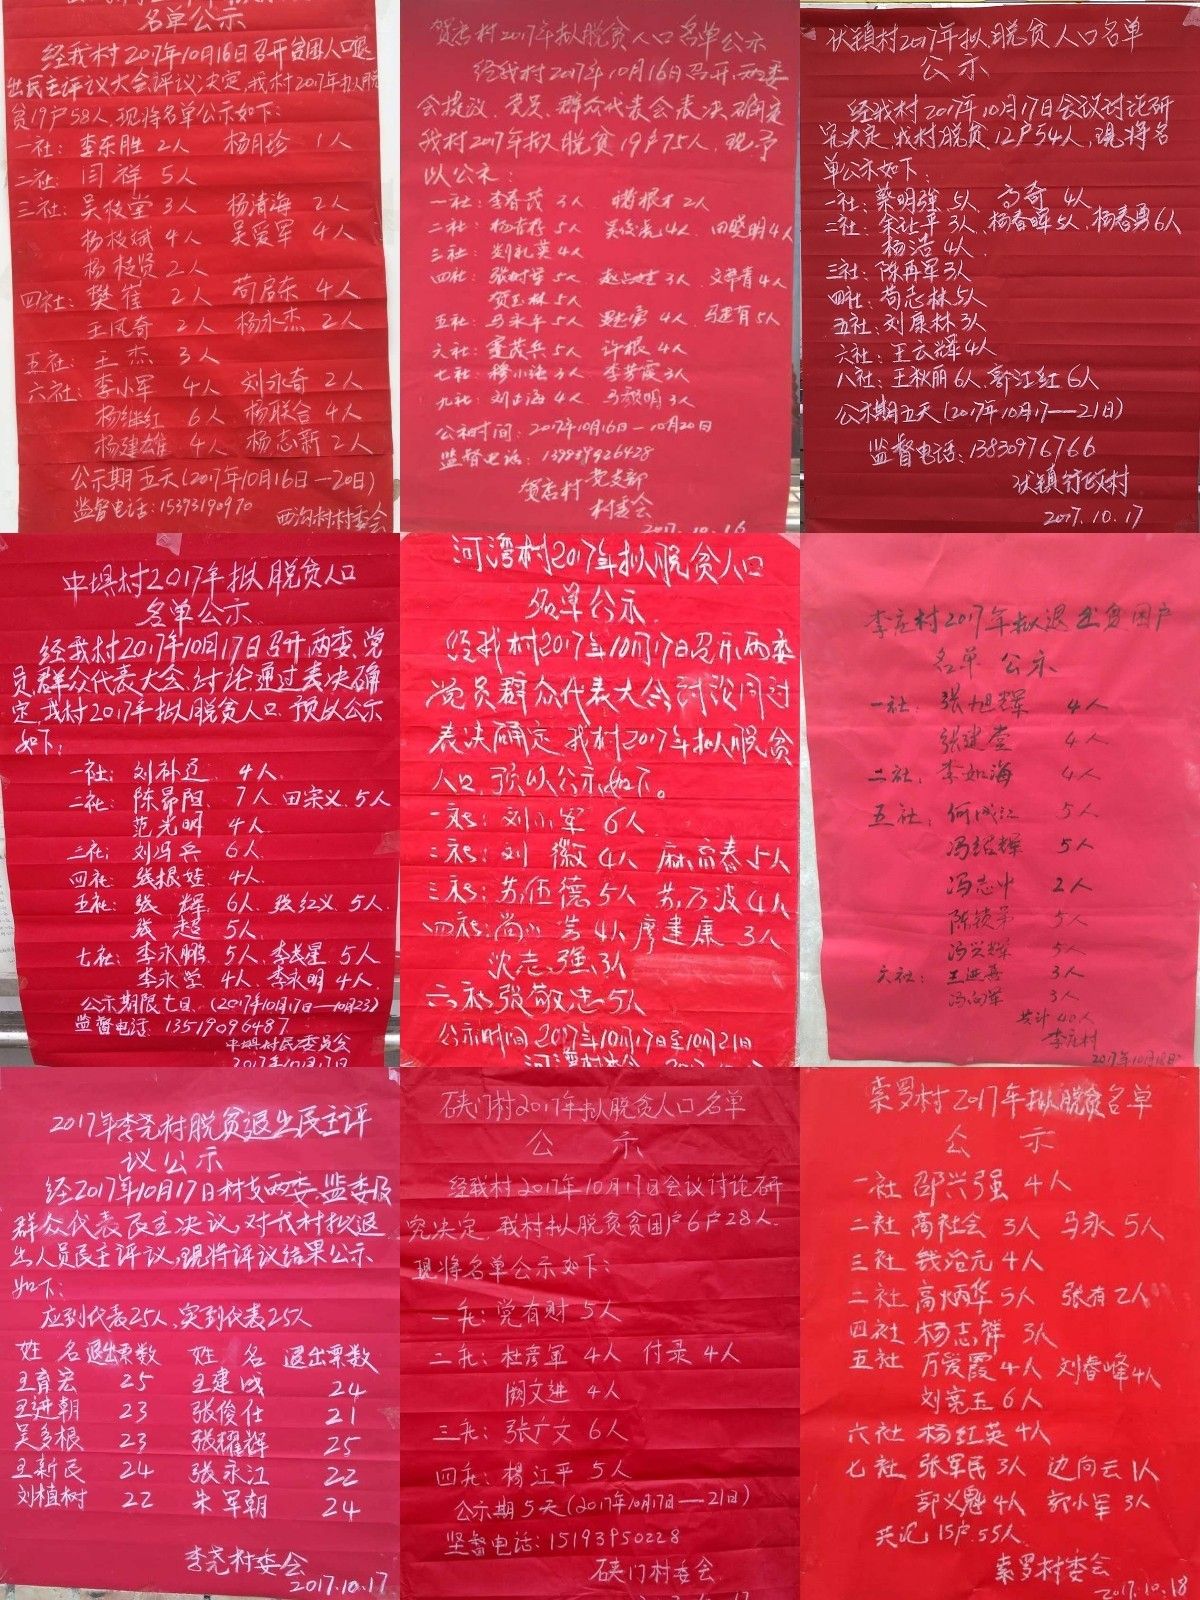 名单公示
经我村2017年10月16日召开贫困人口退
出民主评议大会评议,决定,我村2017年拟脱
贫19户58人,现将名单公示如下:
一社: 李东胜 2人 杨月珍 1人
二社: 闫祥 5人
三社: 吴枝堂 3人 杨清海 2人
杨枝斌 4人 吴爱军 4人
杨枝贤 2人
四社: 樊崔 2人 苟启东 4人
王凤奇 2人 杨永杰 2人
五社: 王杰 3人
六社: 李小军 4人 刘永奇 2人
杨继红 6人 杨联合 4人
杨建雄 4人 杨志新 2人
公示期五天(2017年10月16日—20日)
监督电话:15393190970
西沟村村委会
贺店村2017年拟脱贫人口名单公示
经我村2017年10月16日召开,两委
会提议,党员、群众代表会表决确定
我村2017年拟脱贫19户75人,现予
以公示:
一社: 李春茂 3人 杨根才 2人
二社: 杨 5人 吴俊虎 4人 田晓明 4人
三社: 刘礼英 4人
四社: 张 5人 赵 3人 文 4人
贺玉林 5人
五社: 马永平 5人 4人 马进有 5人
六社: 茂兵 5人 许根 4人
七社: 穆小海 3人 李芳霞 3人
九社: 刘 海 4人 马 明 3人
公示时间: 2017年10月16日—10月20日
监督电话: 13989926428
贺店村 党支部
村委会
2017.10.16
伏镇村2017年拟脱贫人口名单
公示
经我村2017年10月17日会议讨论研
究决定,我村脱贫12户54人,现将名
单公示如下:
一社: 蔡明强 5人 高奇 4人
二社: 朱让平 3人, 杨春晖 5人, 杨春勇 6人
杨洁 4人
三社: 陈再军 3人
四社: 苟志林 5人
五社: 刘康林 3人
六社: 王云辉 4人
八社: 王秋丽 6人, 郭江红 6人
公示期五天(2017年10月17—21日)
监督电话:13830976766
伏镇行政村
2017.10.17
中坝村2017年拟脱贫人口
名单公示
经我村2017年10月17日召开,两委,党
员,群众代表大会,讨论,通过表决确
定,我村2017年拟脱贫人口,预以公示
如下:
一社: 刘补过 4人
二社: 陈昂阳 7人 田宗义 5人
范光明 4人
三社: 刘冯兵 6人
四社: 张根娃 4人
五社: 张辉 6人, 张红义 5人
张超 5人
七社: 李永鹏 5人, 李成星 5人
李永学 4人 李永明 4人
公示期限七日,(2017年10月17日—10月23)
监督电话: 13519096487
中坝村民委员会
2017年10月17日
河湾村2017年拟脱贫人口
名单公示
经我村2017年10月17日召开,两委
党员群众代表大会讨论同过
表决确定,我村2017年拟脱贫
人口,预以公示如下。
一社: 刘小军 6人
二社: 刘徽 4人 麻高春 5人
三社: 苏伍德 5人 苏万波 4人
四社: 尚小芳 4人 廖建康 3人
沈志强 3人
六社: 张敬忠 5人
公示时间 2017年10月17日至10月21日
河湾村村委会
李店村2017年拟退出贫困户
名单公示
一社: 张旭辉 4人
张建堂 4人
二社: 李如海 4人
五社: 何成江 5人
冯绍辉 5人
冯志中 2人
陈锁弟 5人
冯兴辉 5人
六社: 王进喜 3人
冯向军 3人
共计40人
李店村
2017年10月18日
2017年李尧村脱贫退出民主评
议公示
经2017年10月17日村支两委,监委及
群众代表民主决议,对我村拟退
出人员民主评议,现将评议结果公示
如下:
应到代表25人,实到代表25人
姓名 退出票数 姓名 退出票数
王育宏 25 王建成 24
王进朝 23 张俊仕 21
吴多根 23 张耀辉 25
王新民 24 张永江 22
刘植树 22 朱军朝 24
李尧村委会
2017.10.17
硖门村2017年拟脱贫人口名单
公示
经我村2017年10月17日会议讨论研
究决定,我村拟脱贫贫困户6户28人,
现将名单公示如下:
一社: 党有财 5人
二社: 杜彦军 4人 付录 4人
阙文进 4人
三社: 张广文 6人
四社: 杨江平 5人
公示期5天(2017年10月17日—21日)
监督电话:15193950228
硖门村委会
索罗村2017年拟脱贫名单
公示
一社 邵兴强 4人
二社 高社会 3人 马永 5人
三社 钱治元 4人
二社 高炳华 5人 张有 2人
四社 杨志祥 3人
五社 万爱霞 4人 刘春峰 4人
刘亮玉 6人
六社 杨红英 4人
七社 张军民 3人 边向云 1人
郭义魁 4人 郭小军 3人
共记15户55人
索罗村委会
2017.10.18